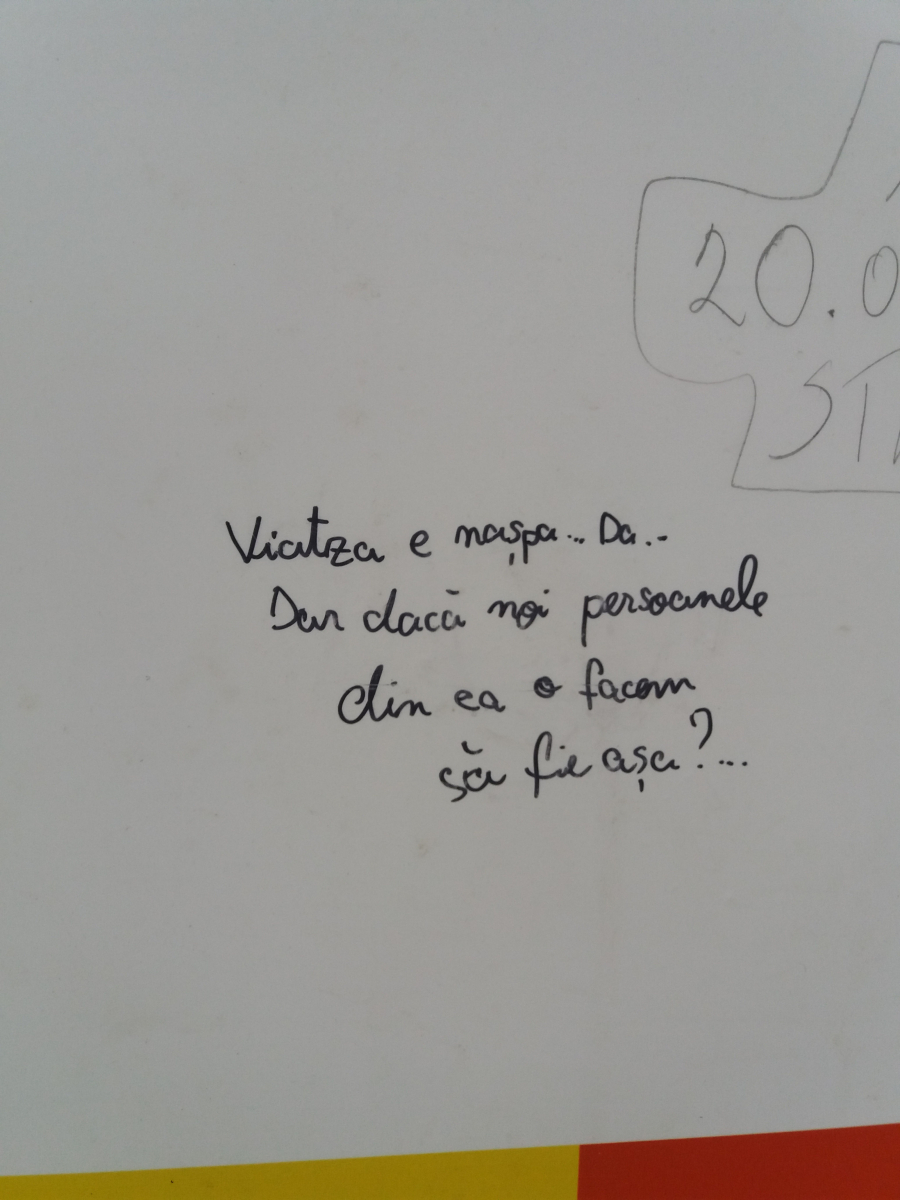 20.0
ST
Viatza e nașpa... Da..
Dar dacă noi persoanele
din ea o facem
să fie așa?...